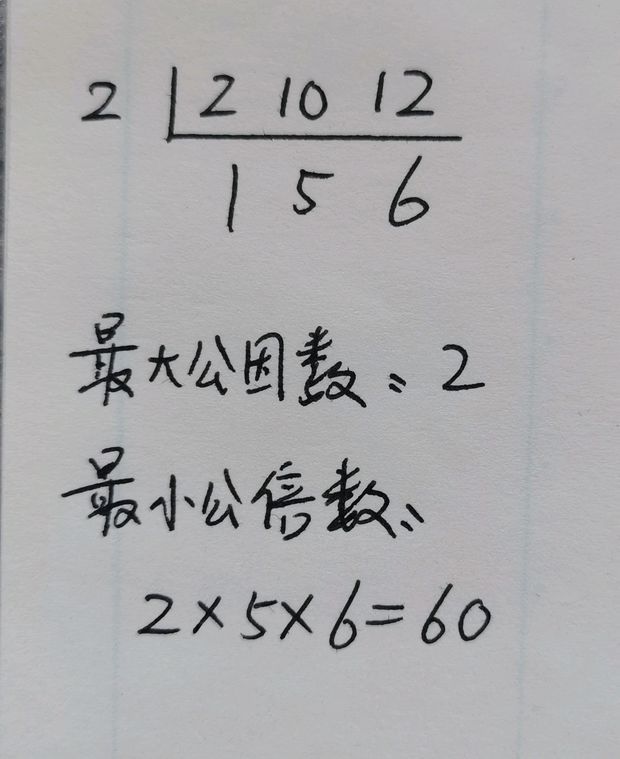 2 2 10 12
1 5 6
最大公因数：2
最小公倍数：
2×5×6=60